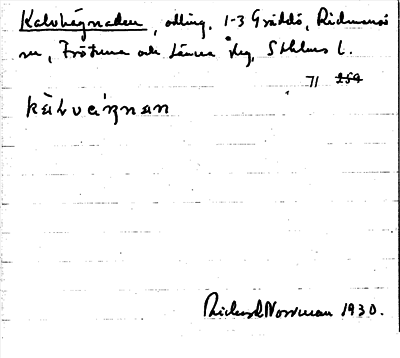 Kalvhägnaden, odling, 1-3 Gräddö, Rådmansö
sn, Frötuna och Länna skg, Sthlms l.
71 259
Rickard Norrman 1930.